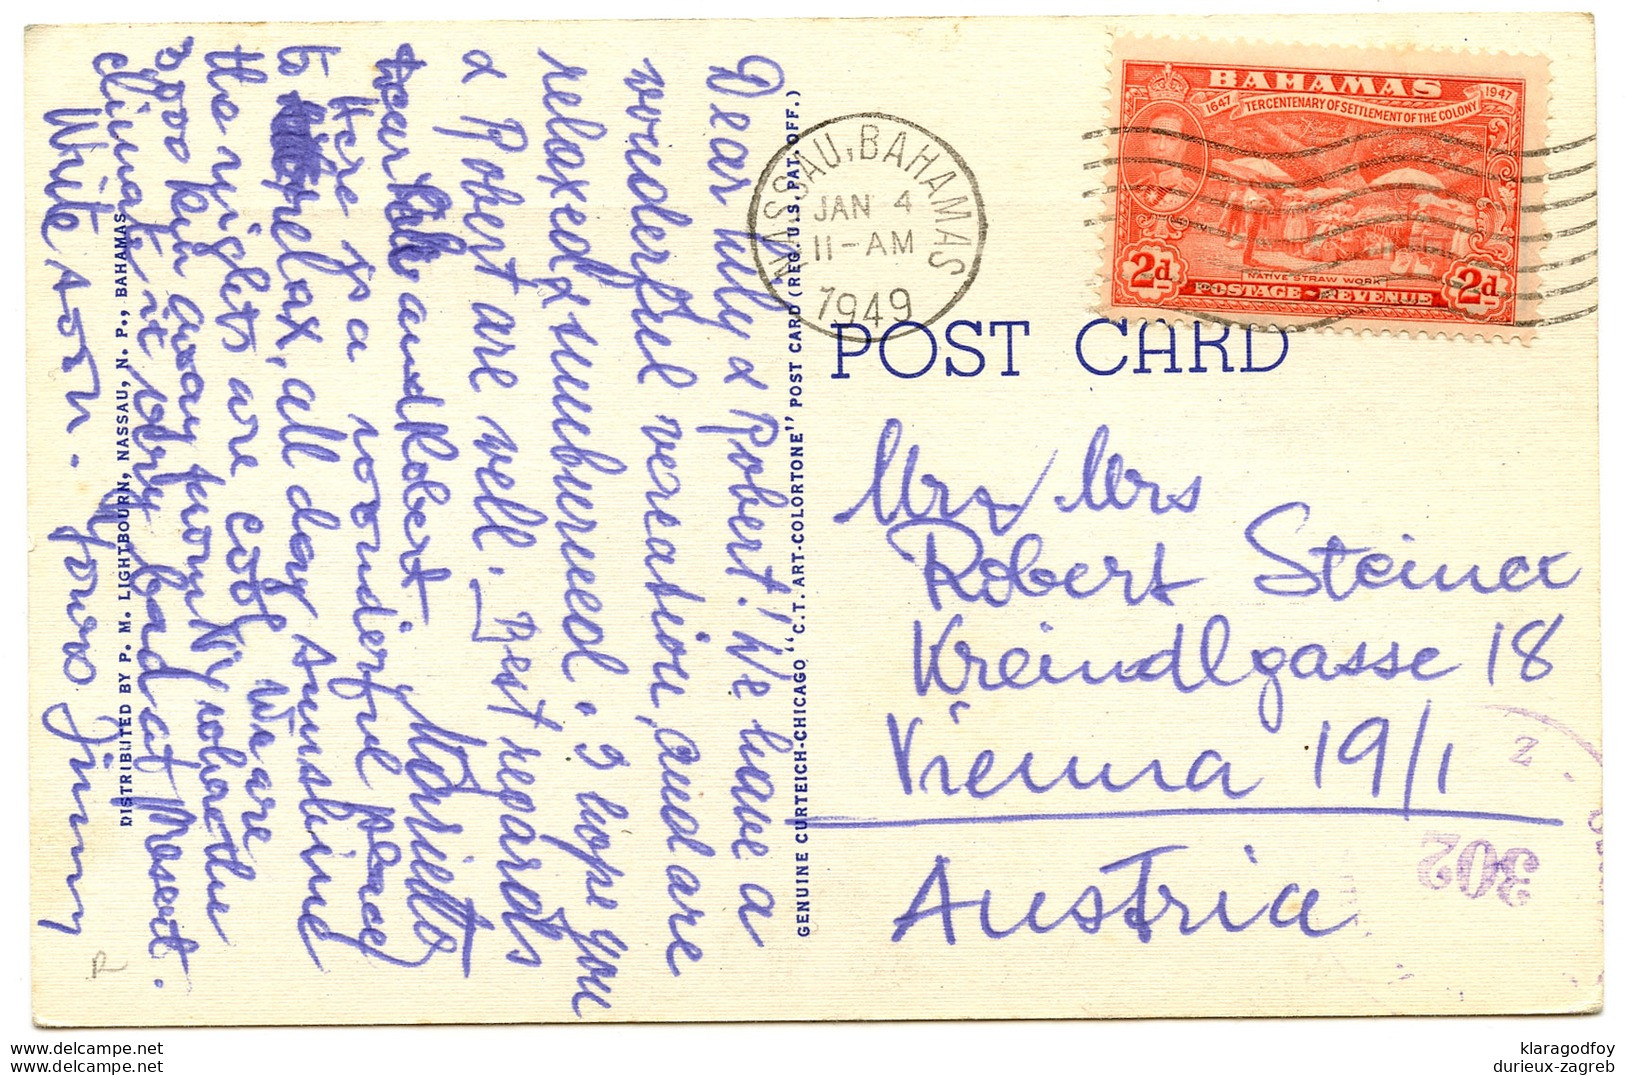 Dear Lilly & Robert! We have a
wonderful vercation, and are
relaxed & sunburned. I hope you
& Robert are well. Best regards
Marietta
Dear Lilli and Robert
Here is a wonderful place
to relax, all day sunshine
the nights are cool. We are
3000 km away from N.Y. where the
climate is very bad at present.
Write soon. Yours Jimmy
DISTRIBUTED BY P. M. LIGHTBOURN, NASSAU, N. P., BAHAMAS
GENUINE CURTEICH-CHICAGO "C.T. ART-COLORTONE" POST CARD (REG. U.S. PAT. OFF.)
NASSAU, BAHAMAS
JAN 4
11-AM
1949
BAHAMAS
1647 TERCENTENARY OF SETTLEMENT OF THE COLONY 1947
NATIVE STRAW WORK
2d POSTAGE-REVENUE 2d
POST CARD
Mr & Mrs
Robert Steiner
Kreindlgasse 18
Vienna 19/1
Austria
302
R
www.delcampe.net
klaragodfoy
The World's Greatest Marketplace for Collectors
durieux-zagreb